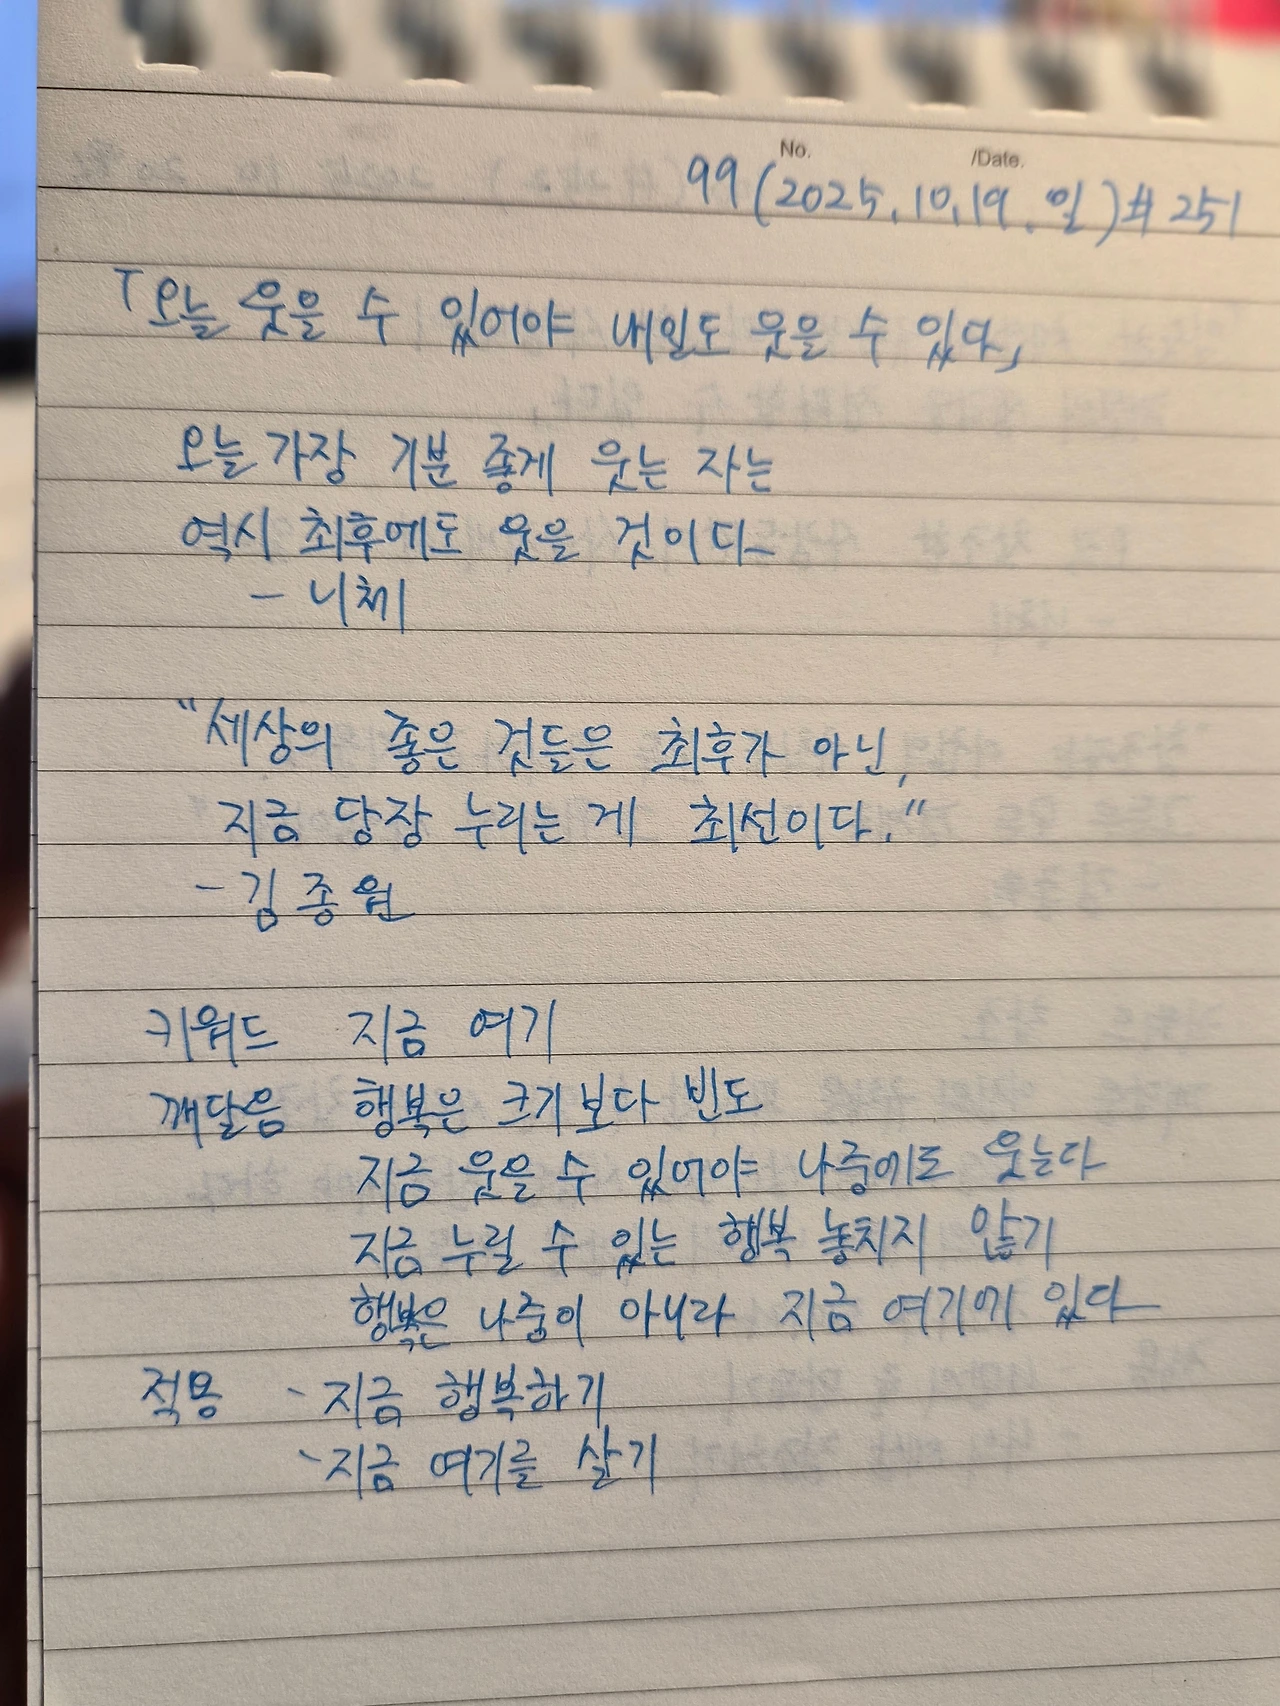 No. /Date.
99 (2025. 10. 19. 일) # 251
「오늘 웃을 수 있어야 내일도 웃을 수 있다」
오늘 가장 기분 좋게 웃는 자는
역시 최후에도 웃을 것이다
- 니체
"세상의 좋은 것들은 최후가 아닌,
지금 당장 누리는 게 최선이다."
- 김종원
키워드 지금 여기
깨달음 행복은 크기보다 빈도
지금 웃을 수 있어야 나중에도 웃는다
지금 누릴 수 있는 행복 놓치지 않기
행복은 나중이 아니라 지금 여기에 있다
적용 - 지금 행복하기
- 지금 여기를 살기